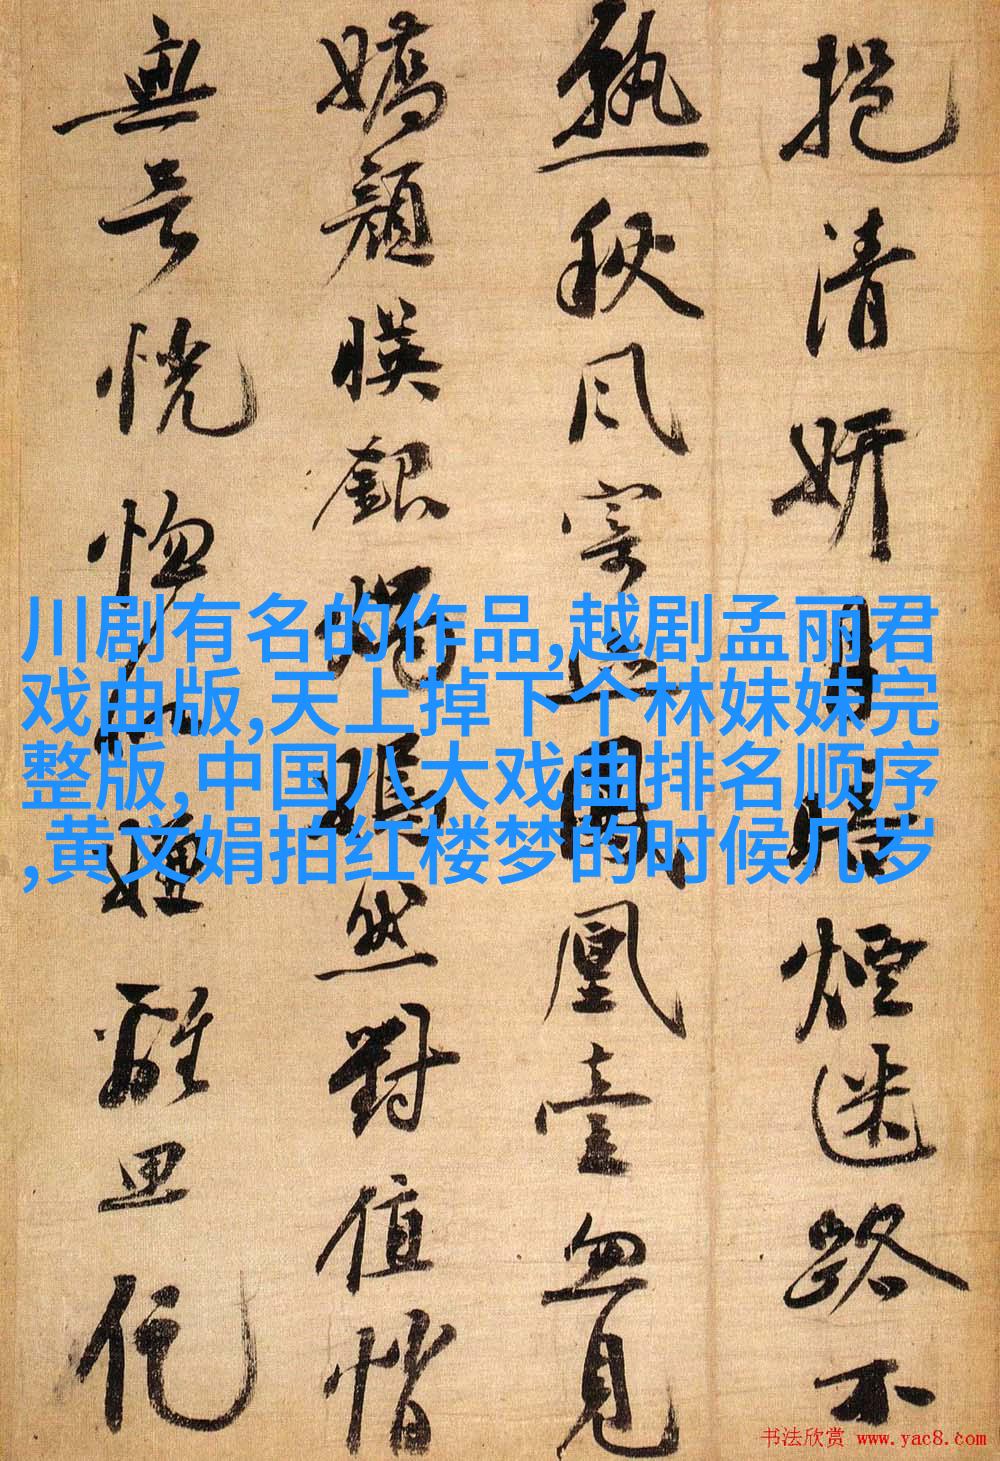 挹清妍煙迷路不
秋风寥凰臺忽見
嬌顏暎銀燭嫣然對值悄
無言恍惚
川剧有名的作品,越剧孟丽君
戏曲版,天上掉下个林妹妹完
整版,中国八大戏曲排名顺序
,黄文娟拍红楼梦的时候几岁
书法欣赏 www.yac8.com